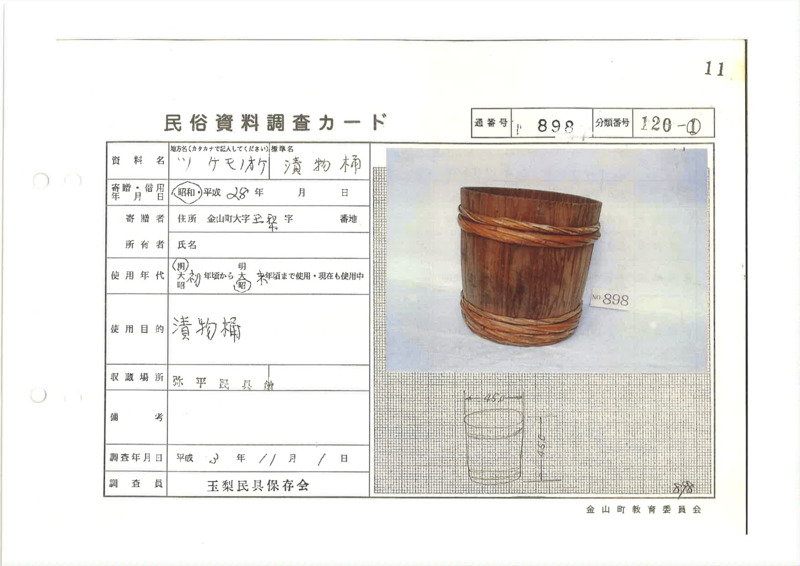 11
民俗資料調査カード
通番号 898 分類番号 120-①
資料名 地方名(カタカナで記入してください) ツケモノオケ 標準名 漬物桶
寄贈・借用年月日 昭和・平成 28年 月 日
寄贈者 住所 金山町大字玉梨字 番地
所有者 氏名
使用年代 明大昭 初年頃から 明大昭 末年頃まで使用・現在も使用中
使用目的 漬物桶
収蔵場所 弥平民具館
備考
調査年月日 平成 3年 11月 1日
調査員 玉梨民具保存会
NO 898
450
450
898
金山町教育委員会